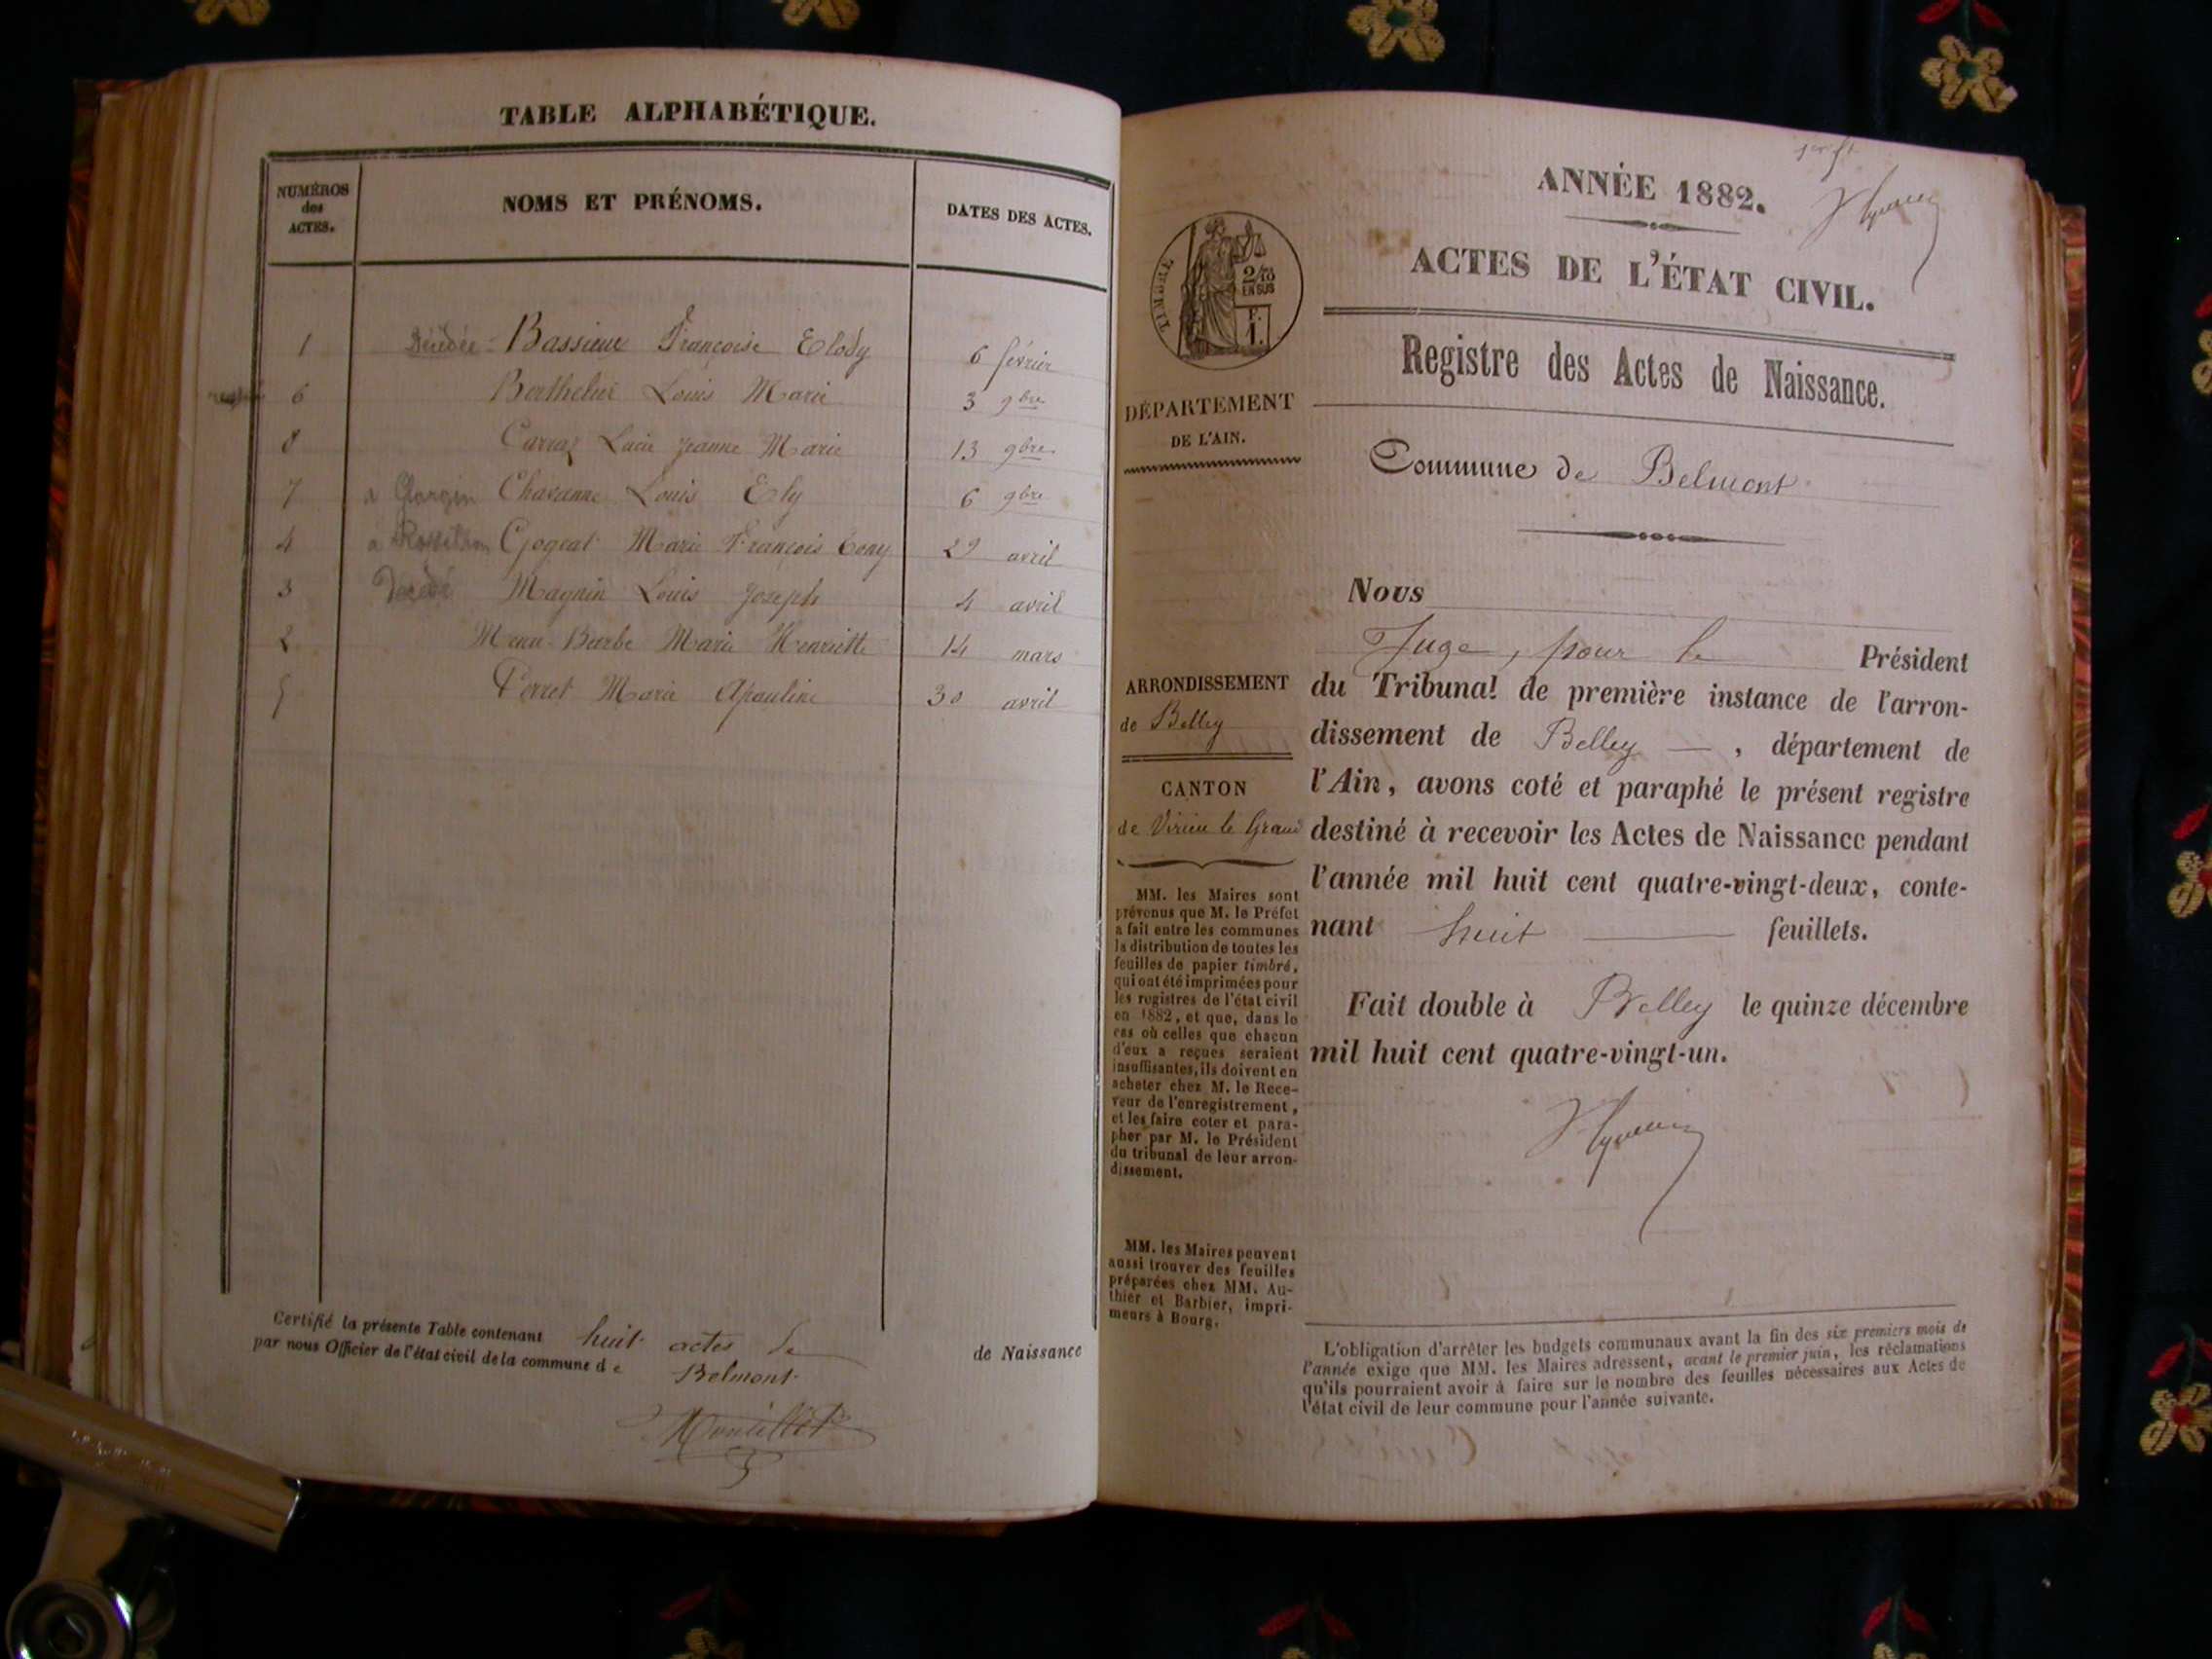 TABLE ALPHABÉTIQUE.
NUMÉROS des ACTES.
NOMS ET PRÉNOMS.
DATES DES ACTES.
1 Décédée - Bassieux Françoise Elody 6 février
6 Berthelier Louis Marie 3 9bre
8 Carraz Lucie Jeanne Marie 13 9bre
7 Chavanne Louis Ely 6 9bre
4 à Rossillon Gogeat Marie François Tony 29 avril
3 Décédé Magnin Louis Joseph 4 avril
2 Barbe Marie Henriette 14 mars
5 Perret Marie Apauline 30 avril
Certifié la présente Table contenant huit actes de de Naissance
par nous Officier de l'état civil de la commune de Belmont
ANNÉE 1882.
ACTES DE L'ÉTAT CIVIL.
Registre des Actes de Naissance.
Commune de Belmont
TIMBRE
2/10
EN SUS
F.
1.
DÉPARTEMENT
DE L'AIN.
ARRONDISSEMENT
de Belley
CANTON
de Virieu le Grand
MM. les Maires sont
prévenus que M. le Préfet
a fait entre les communes
la distribution de toutes les
feuilles de papier timbré,
qui ont été imprimées pour
les registres de l'état civil
en 1882, et que, dans le
cas où celles que chacun
d'eux a reçues seraient
insuffisantes, ils doivent en
acheter chez M. le Rece-
veur de l'enregistrement,
et les faire coter et para-
pher par M. le Président
du tribunal de leur arron-
dissement.
MM. les Maires peuvent
aussi trouver des feuilles
préparées chez MM. Au-
thier et Barbier, impri-
meurs à Bourg.
Nous
Juge, pour le Président
du Tribunal de première instance de l'arron-
dissement de Belley — , département de
l'Ain, avons coté et paraphé le présent registre
destiné à recevoir les Actes de Naissance pendant
l'année mil huit cent quatre-vingt-deux, conte-
nant huit feuillets.
Fait double à Belley le quinze décembre
mil huit cent quatre-vingt-un.
L'obligation d'arrêter les budgets communaux avant la fin des six premiers mois de
l'année exige que MM. les Maires adressent, avant le premier juin, les réclamations
qu'ils pourraient avoir à faire sur le nombre des feuilles nécessaires aux Actes de
l'état civil de leur commune pour l'année suivante.